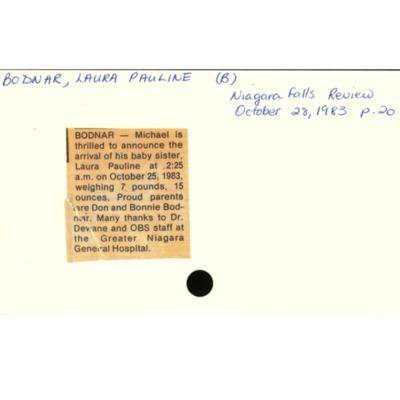 BODNAR, LAURA PAULINE (B)
Niagara Falls Review
October 28, 1983 p.20
BODNAR — Michael is
thrilled to announce the
arrival of his baby sister,
Laura Pauline at 2:25
a.m. on October 25, 1983,
weighing 7 pounds, 15
ounces. Proud parents
are Don and Bonnie Bod-
nar. Many thanks to Dr.
Devane and OBS staff at
the Greater Niagara
General Hospital.